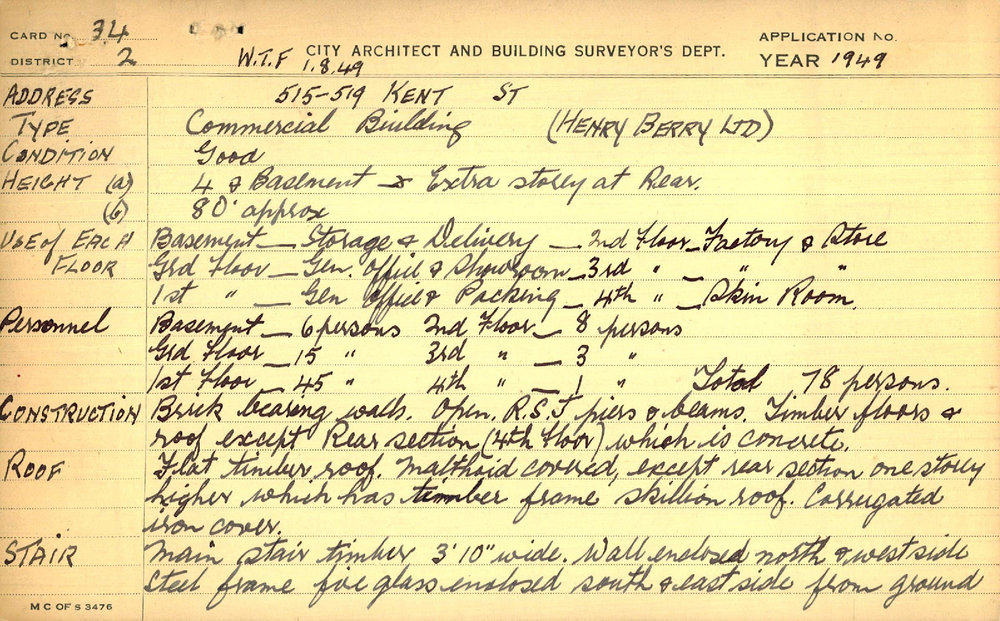 CARD No. 34
DISTRICT 2
W.T.F 1.8.49
CITY ARCHITECT AND BUILDING SURVEYOR'S DEPT.
APPLICATION No.
YEAR 1949
ADDRESS 515-519 KENT ST
TYPE Commercial Building (HENRY BERRY LTD)
CONDITION Good
HEIGHT (a) 4 & Basement & Extra storey at Rear.
(b) 80' approx
USE of EACH Basement — Storage & Delivery — 2nd Floor — Factory & Store
FLOOR Grd Floor — Gen. Office & Showroom — 3rd " — " "
1st " — Gen Office & Packing — 4th " — Skin Room.
Personnel Basement — 6 persons 2nd Floor — 8 persons
Grd Floor — 15 " 3rd " — 3 "
1st Floor — 45 " 4th " — 1 " Total 78 persons.
CONSTRUCTION Brick bearing walls. Open. R.S.J piers & beams. Timber floors &
roof except Rear section (4th Floor) which is concrete.
ROOF Flat timber roof. Malthoid covered, except rear section one storey
higher which has timber frame skillion roof. Corrugated
iron cover.
STAIR Main stair timber 3'10" wide. Wall enclosed north & west side
Steel frame fire glass enclosed south & east side from ground
M C OF S 3476